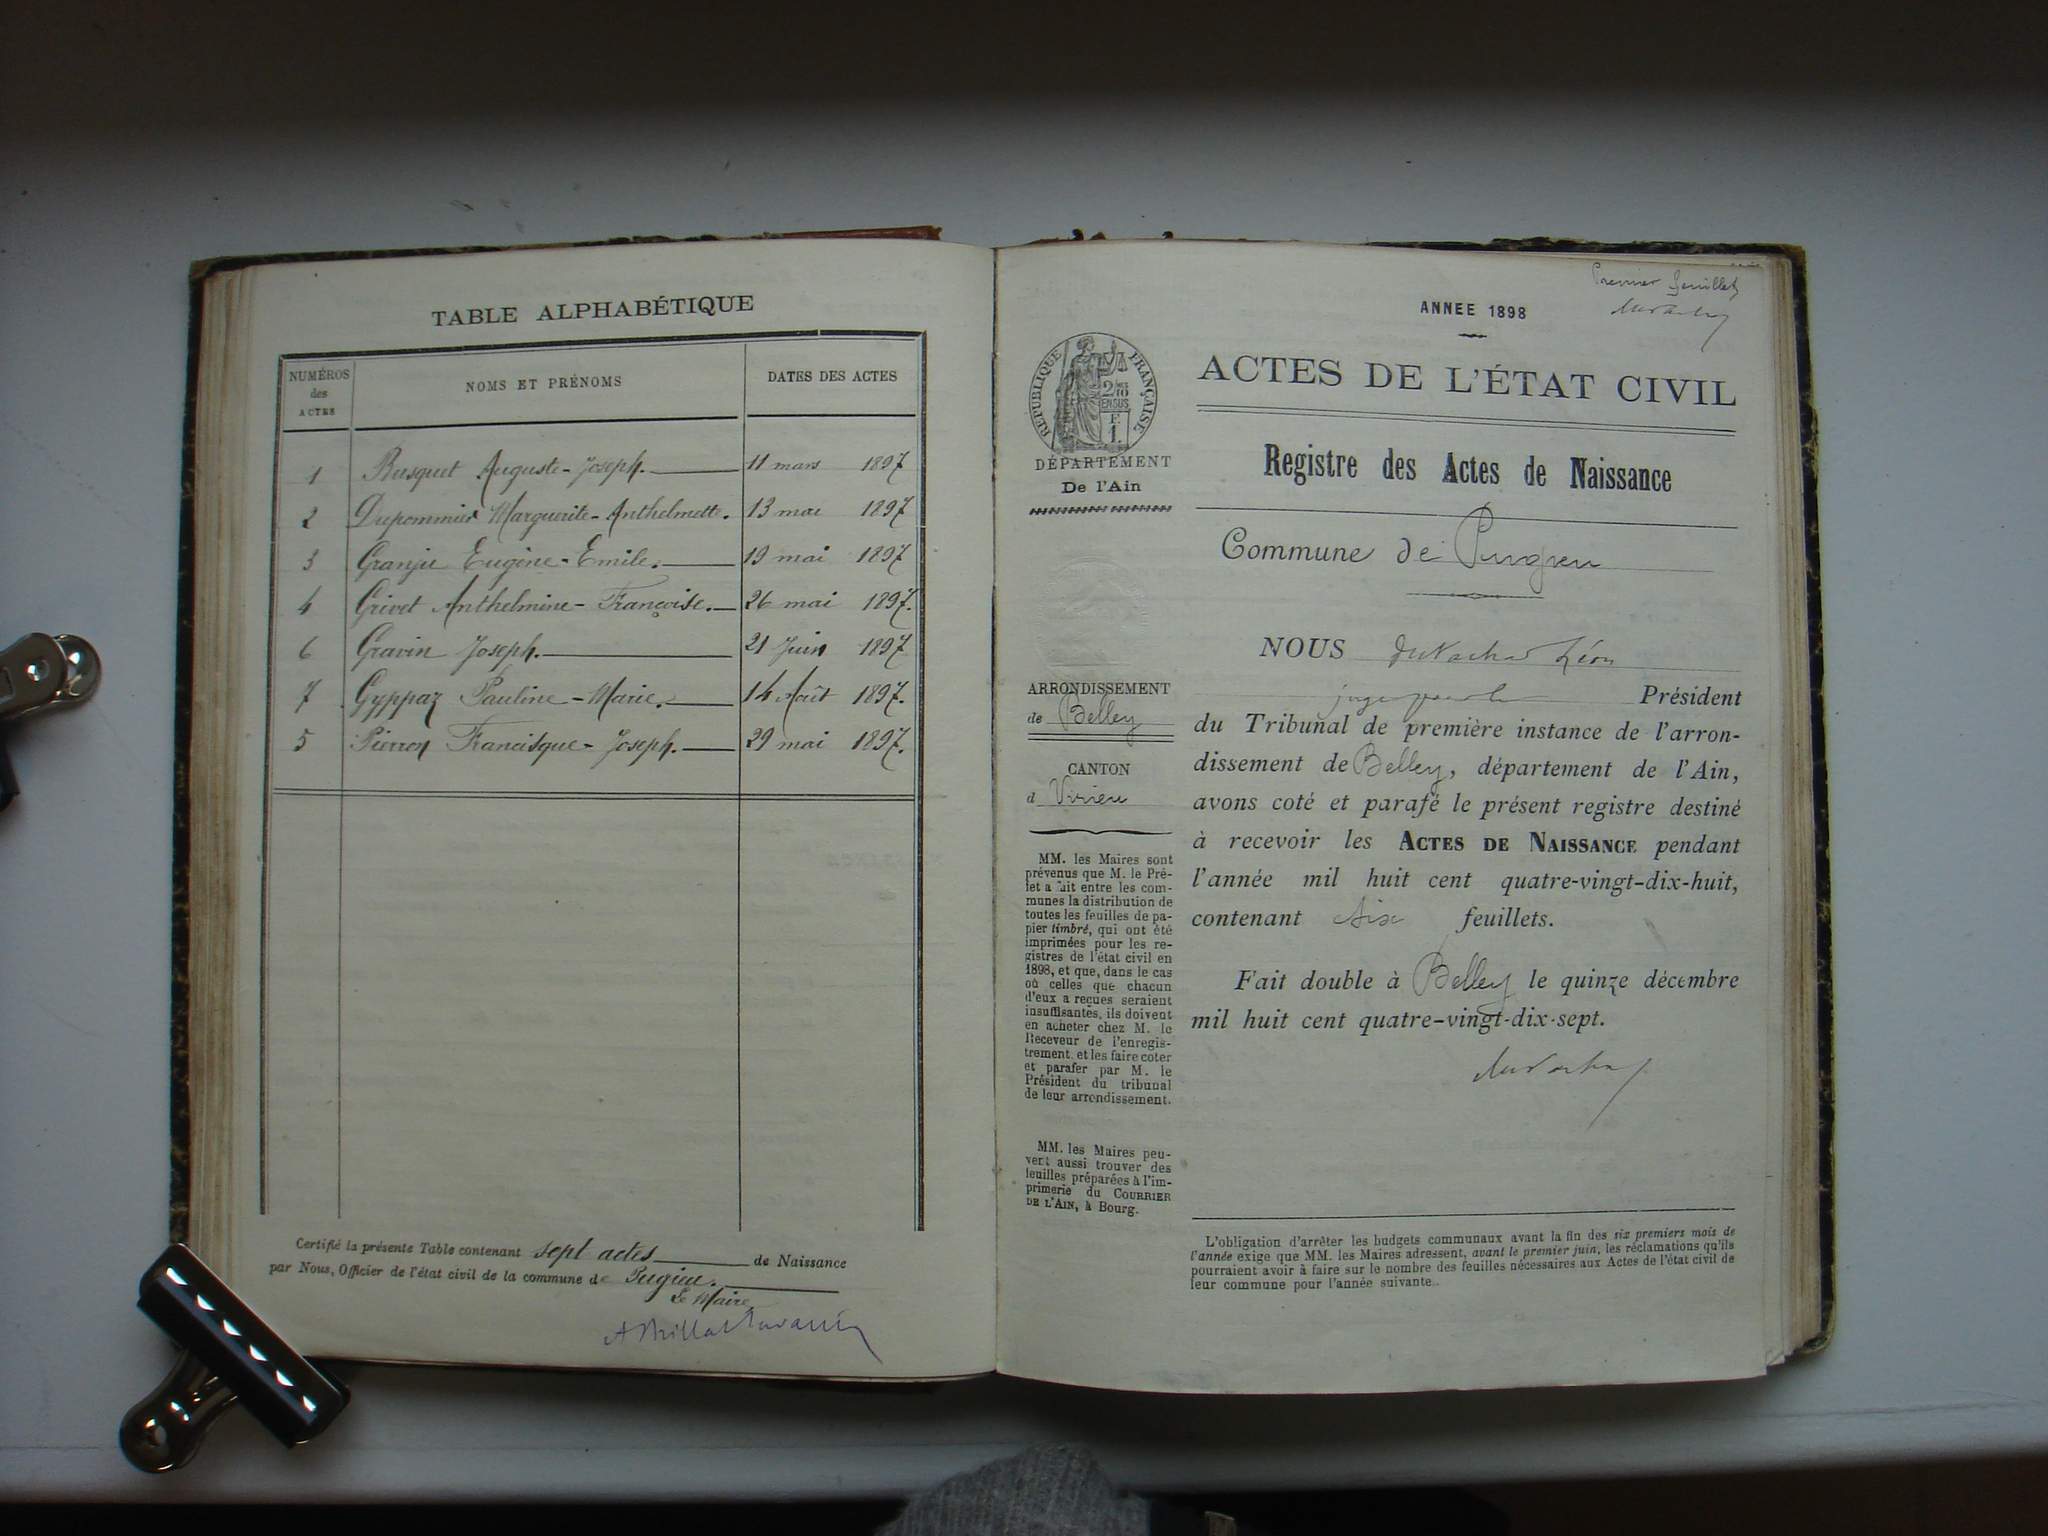 TABLE ALPHABÉTIQUE
NUMÉROS des ACTES
NOMS ET PRÉNOMS
DATES DES ACTES
1 Busquet Auguste-Joseph. 11 mars 1897
2 Dupommier Marguerite-Anthelmette. 13 mai 1897
3 Granju Eugène-Emile. 19 mai 1897
4 Grivet Anthelmine-Françoise. 26 mai 1897.
6 Gravin Joseph. 21 Juin 1897
7 Gyppaz Pauline-Marie. 14 Août 1897.
5 Pierron Francisque-Joseph. 29 mai 1897.
Certifié la présente Table contenant sept actes de Naissance
par Nous, Officier de l'état civil de la commune de Pugieu.
Le Maire
Premier feuillet
ANNEE 1898
RÉPUBLIQUE FRANÇAISE
2/10
EN SUS
F.
1.
DÉPARTEMENT
De l'Ain
ARRONDISSEMENT
de Belley
CANTON
d Virieu
MM. les Maires sont
prévenus que M. le Pré-
fet a fait entre les com-
munes la distribution de
toutes les feuilles de pa-
pier timbré, qui ont été
imprimées pour les re-
gistres de l'état civil en
1898, et que, dans le cas
où celles que chacun
d'eux a reçues seraient
insuffisantes, ils doivent
en acheter chez M. le
Receveur de l'enregis-
trement, et les faire coter
et parafer par M. le
Président du tribunal
de leur arrondissement.
MM. les Maires peu-
vent aussi trouver des
feuilles préparées à l'im-
primerie du COURRIER
DE L'AIN, à Bourg.
ACTES DE L'ÉTAT CIVIL
Registre des Actes de Naissance
Commune de Pugieu
NOUS Léon
Président
du Tribunal de première instance de l'arron-
dissement de Belley, département de l'Ain,
avons coté et parafé le présent registre destiné
à recevoir les ACTES DE NAISSANCE pendant
l'année mil huit cent quatre-vingt-dix-huit,
contenant feuillets.
Fait double à Belley le quinze décembre
mil huit cent quatre-vingt-dix-sept.
L'obligation d'arrêter les budgets communaux avant la fin des six premiers mois de
l'année exige que MM. les Maires adressent, avant le premier juin, les réclamations qu'ils
pourraient avoir à faire sur le nombre des feuilles nécessaires aux Actes de l'état civil de
leur commune pour l'année suivante.